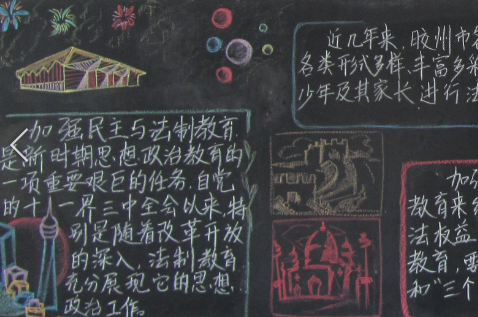 加强民主与法制教育,
是新时期思想政治教育的
一项重要艰巨的任务,自党
的十一界三中全会以来,特
别是随着改革开放
的深入,法制教育
充分展现它的思想
政治工作。
近几年来,胶州市
各类形式多样,丰富多
少年及其家长进行法
加
教育来
法权益
教育,
和“三个